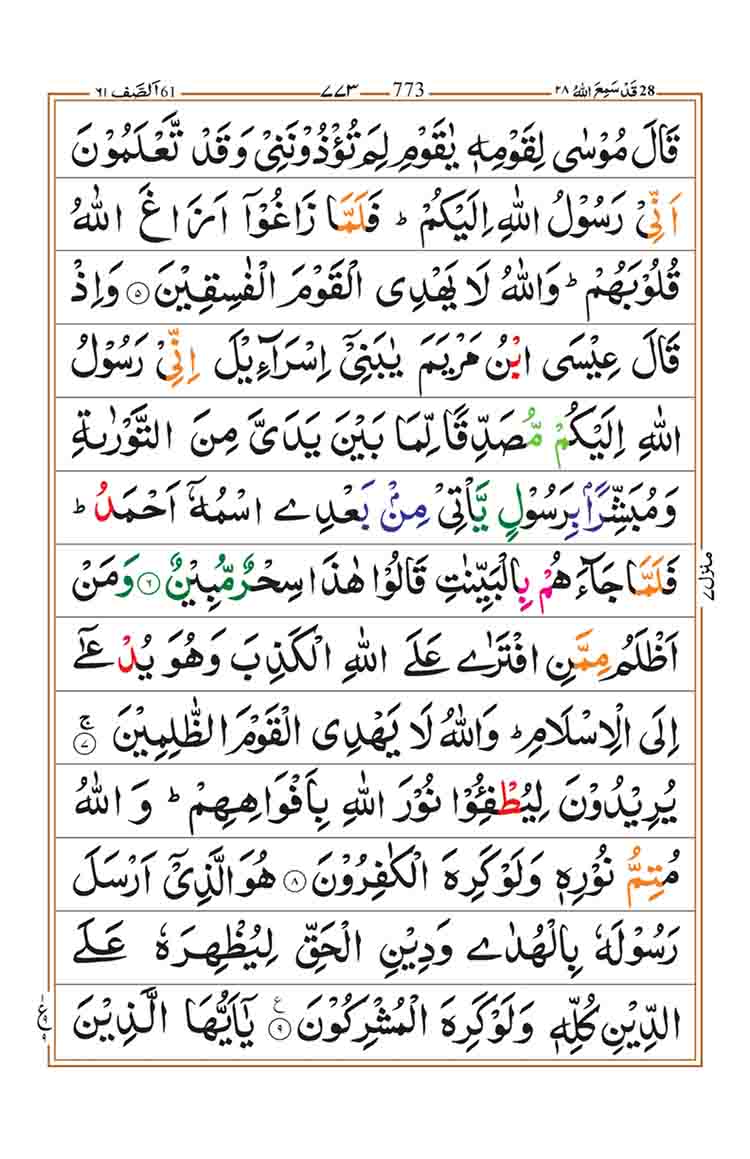 28 قَدۡ سَمِعَ اللّٰهُ ٢٨ 773 ٧٧٣ 61 اَلصَّف ٦١
قَالَ مُوۡسٰى لِقَوۡمِهٖ يٰقَوۡمِ لِمَ تُؤۡذُوۡنَنِىۡ وَ قَدۡ تَّعۡلَمُوۡنَ
اَنِّىۡ رَسُوۡلُ اللّٰهِ اِلَيۡكُمۡ‌ؕ فَلَمَّا زَاغُوۡۤا اَزَاغَ اللّٰهُ
قُلُوۡبَهُمۡ‌ؕ وَاللّٰهُ لَا يَهۡدِى الۡقَوۡمَ الۡفٰسِقِيۡنَ ۝٥ وَاِذۡ
قَالَ عِيۡسَى ابۡنُ مَرۡيَمَ يٰبَنِىۡۤ اِسۡرَآءِيۡلَ اِنِّىۡ رَسُوۡلُ
اللّٰهِ اِلَيۡكُمۡ مُّصَدِّقًا لِّمَا بَيۡنَ يَدَىَّ مِنَ التَّوۡرٰٮةِ
وَمُبَشِّرًۢا بِرَسُوۡلٍ يَّاۡتِىۡ مِنۡۢ بَعۡدِى اسۡمُهٗۤ اَحۡمَدُ‌ؕ
فَلَمَّا جَآءَهُمۡ بِالۡبَيِّنٰتِ قَالُوۡا هٰذَا سِحۡرٌ مُّبِيۡنٌ ۝٦ وَمَنۡ
اَظۡلَمُ مِمَّنِ افۡتَرٰى عَلَى اللّٰهِ الۡكَذِبَ وَهُوَ يُدۡعٰٓى
اِلَى الۡاِسۡلَامِ‌ؕ وَاللّٰهُ لَا يَهۡدِى الۡقَوۡمَ الظّٰلِمِيۡنَ‌ۚ ۝٧
يُرِيۡدُوۡنَ لِيُطۡفِـُٔـوۡا نُوۡرَ اللّٰهِ بِاَفۡوَاهِهِمۡ‌ؕ وَاللّٰهُ
مُتِمُّ نُوۡرِهٖ وَلَوۡ كَرِهَ الۡكٰفِرُوۡنَ ۝٨ هُوَ الَّذِىۡۤ اَرۡسَلَ
رَسُوۡلَهٗ بِالۡهُدٰى وَدِيۡنِ الۡحَقِّ لِيُظۡهِرَهٗ عَلَى
الدِّيۡنِ كُلِّهٖ وَلَوۡ كَرِهَ الۡمُشۡرِكُوۡنَ ۝٩ ع يٰۤاَيُّهَا الَّذِيۡنَ
منزل ٧
ع ٩ ٩